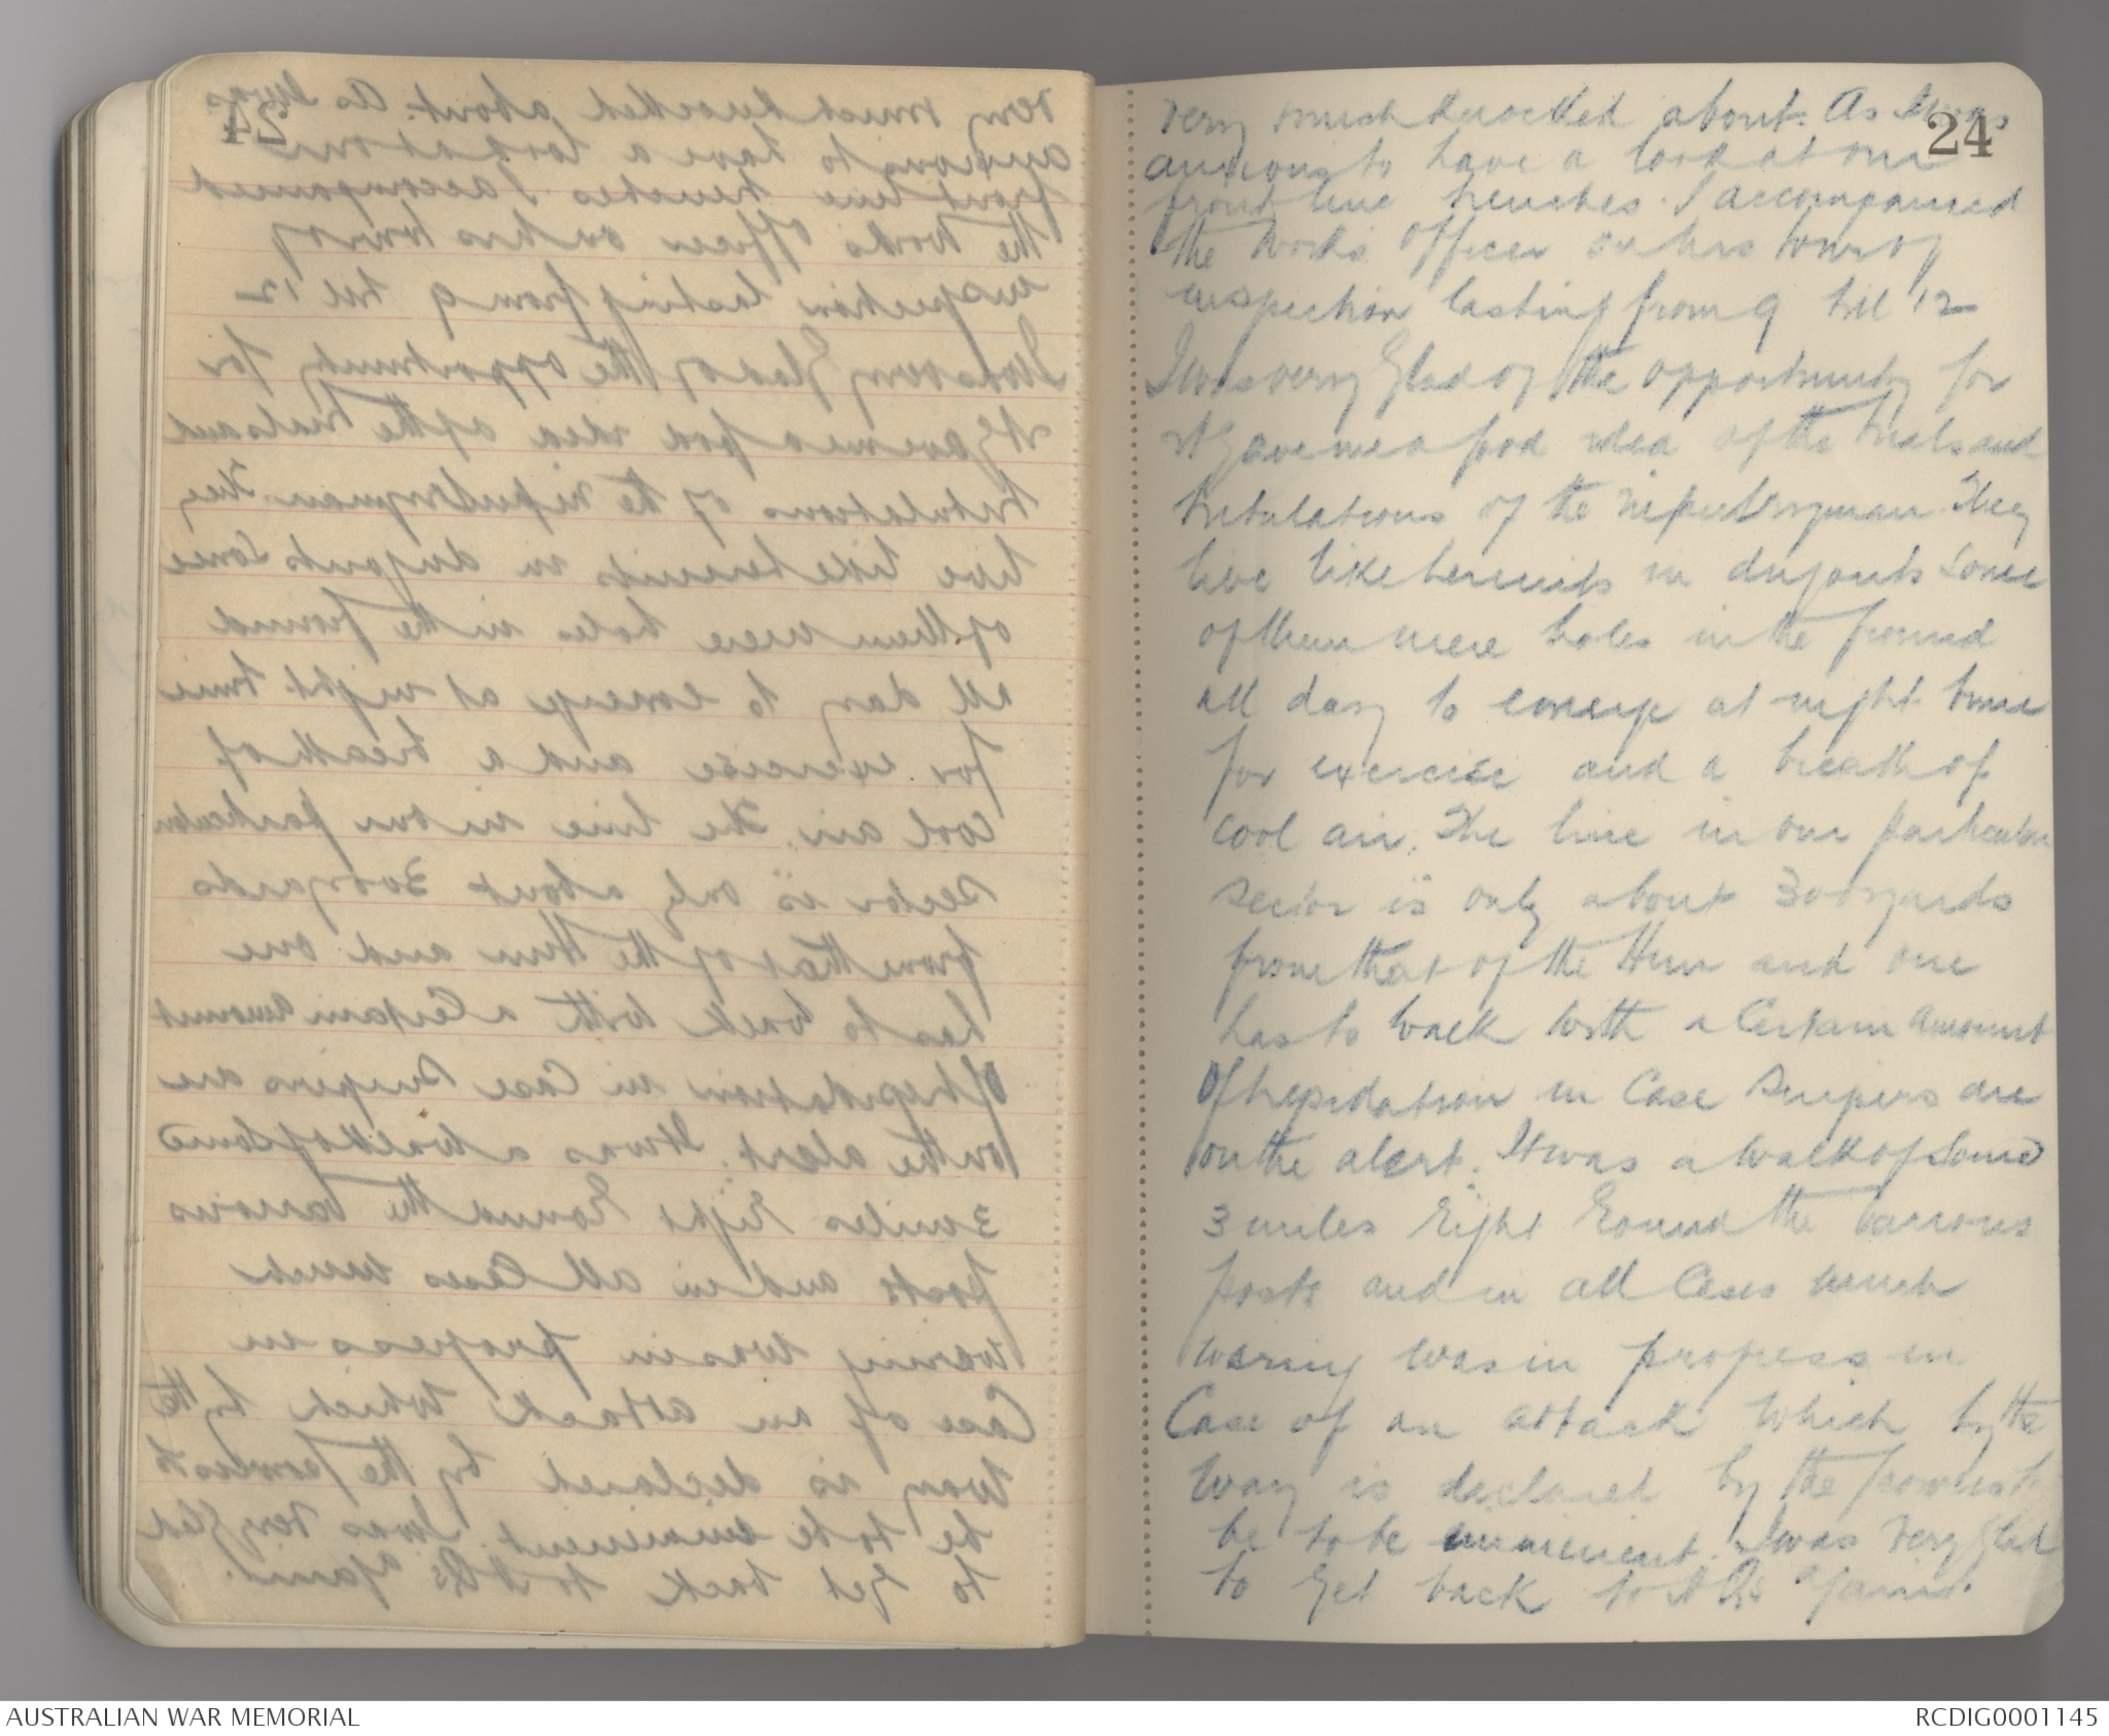 24
very much knocked about. As I was
anxious to have a look at our
front line trenches. I accompanied
the works officer on his tour of
inspection lasting from 9 till 12
I was very glad of the opportunity for
it gave me a good idea of the trials and
tribulations of the infantryman. They
live like hermits in dugouts some
of them mere holes in the ground
all day to emerge at night time
for exercise and a breath of
cool air. The line in our particular
sector is only about 300 yards
from that of the Hun and one
has to walk with a certain amount
of trepidation in case snipers are
on the alert. It was a walk of some
3 miles right round the various
posts and in all cases much
wiring was in progress in
Case of an attack which by the
way is declared by the powers to
be to be imminent. I was very glad
to get back to HQs again.
AUSTRALIAN WAR MEMORIAL
RCDIG0001145